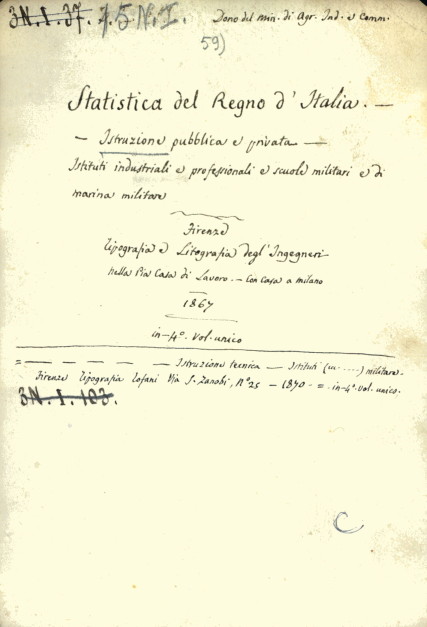 3N.I.37. 15 N.I. Dono del Min. di Agr. Ind. e Comm.
59)
Statistica del Regno d'Italia. —
— Istruzione pubblica e privata —
Istituti industriali e professionali e scuole militari e di
marina militare
Firenze
Tipografia e Litografia degl'Ingegneri
nella Pia Casa di Lavoro. — Con Casa a Milano
1867
in-4° vol. unico
= — — — — — — Istruzione tecnica — Istituti (.....) militare.
Firenze Tipografia Tofani Via S. Zanobi, N° 25 — 1870 — = in-4° vol. unico.
3N.I.103.
C